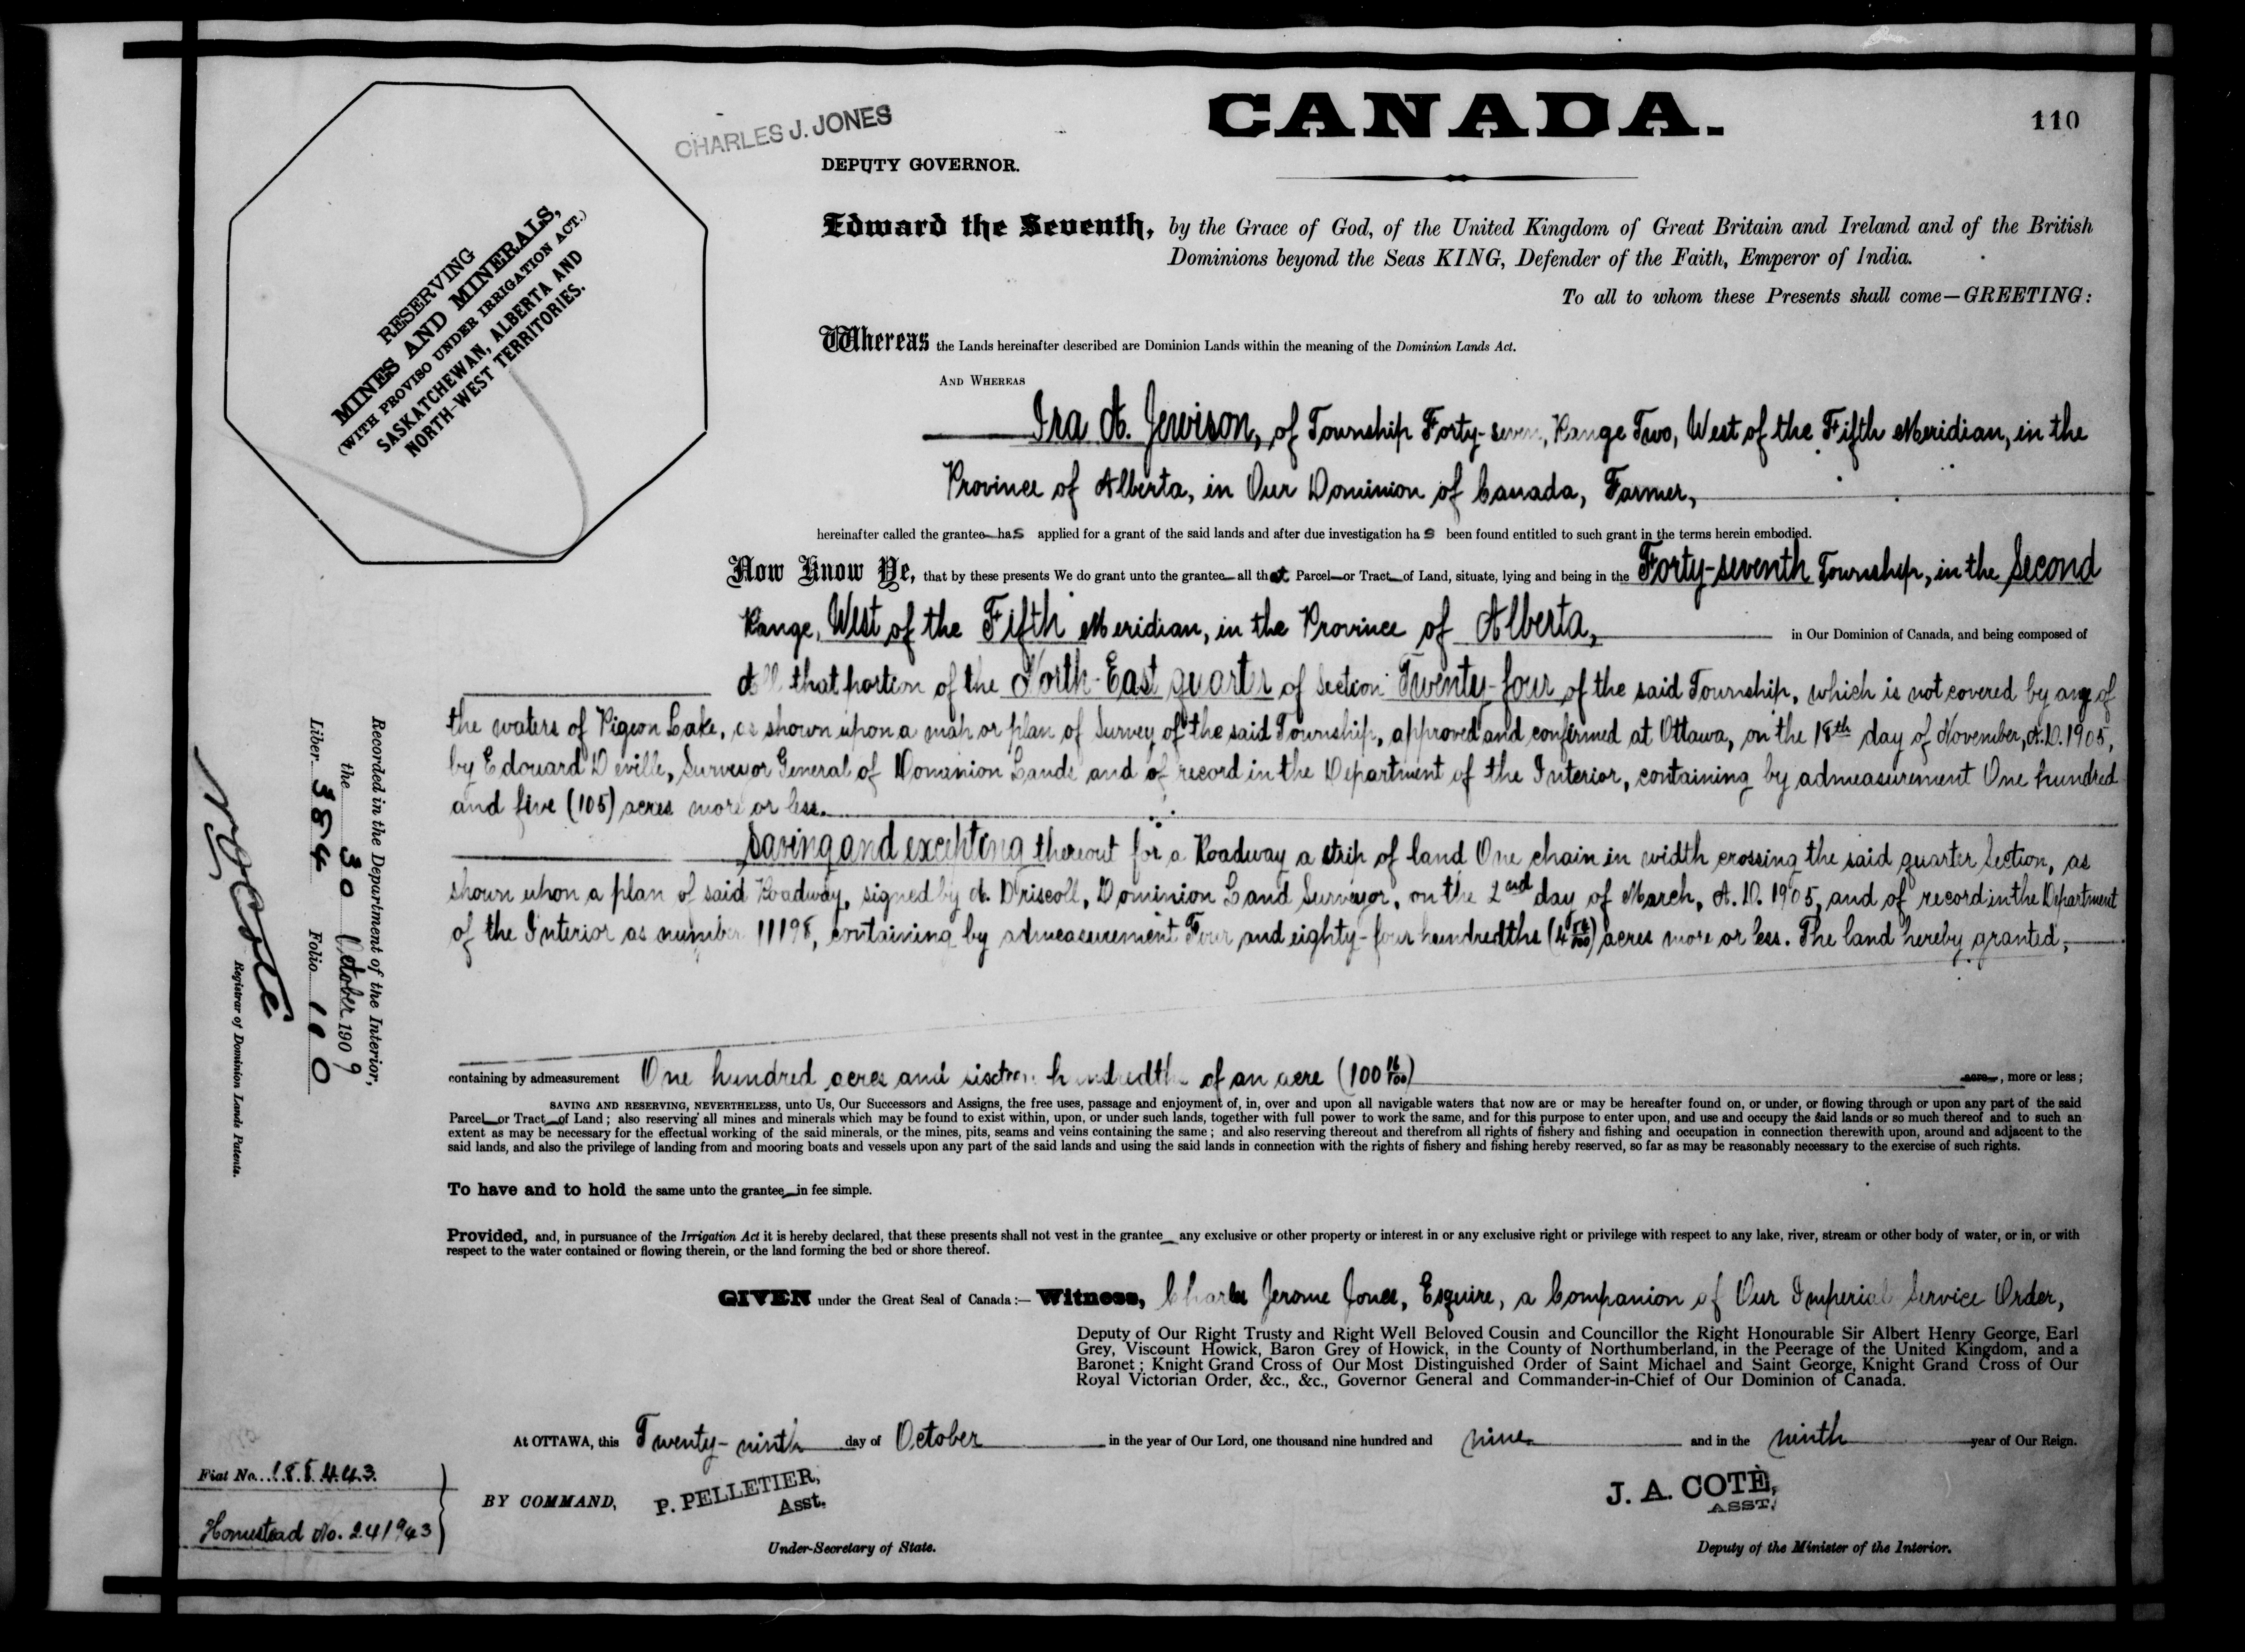 CANADA.
110
CHARLES J. JONES
DEPUTY GOVERNOR.
RESERVING
MINES AND MINERALS,
(WITH PROVISO UNDER IRRIGATION ACT.)
SASKATCHEWAN, ALBERTA AND
NORTH-WEST TERRITORIES.
Edward the Seventh, by the Grace of God, of the United Kingdom of Great Britain and Ireland and of the British
Dominions beyond the Seas KING, Defender of the Faith, Emperor of India.
To all to whom these Presents shall come—GREETING:
Whereas the Lands hereinafter described are Dominion Lands within the meaning of the Dominion Lands Act.
AND WHEREAS
Ira A. Jewison, of Township Forty-seven, Range Two, West of the Fifth Meridian, in the
Province of Alberta, in Our Dominion of Canada, Farmer,
hereinafter called the grantee has applied for a grant of the said lands and after due investigation has been found entitled to such grant in the terms herein embodied.
Now Know Ye, that by these presents We do grant unto the grantee all that Parcel or Tract of Land, situate, lying and being in the Forty-seventh Township, in the Second
Range, West of the Fifth Meridian, in the Province of Alberta, in Our Dominion of Canada, and being composed of
All that portion of the North-East quarter of Section Twenty-four of the said Township, which is not covered by any of
the waters of Pigeon Lake, as shown upon a map or plan of Survey of the said Township, approved and confirmed at Ottawa, on the 18th day of November, A.D. 1905,
by Edouard Deville, Surveyor General of Dominion Lands and of record in the Department of the Interior, containing by admeasurement One hundred
and five (105) acres more or less.
Saving and excepting thereout for a Roadway a strip of land One chain in width crossing the said quarter Section, as
shown upon a plan of said Roadway, signed by A. Driscoll, Dominion Land Surveyor, on the 2nd day of March, A.D. 1905, and of record in the Department
of the Interior as number 11198, containing by admeasurement Four and eighty-four hundredths (4 84/100) acres more or less. The land hereby granted,
containing by admeasurement One hundred acres and sixteen hundredths of an acre (100 16/100) acre, more or less;
SAVING AND RESERVING, NEVERTHELESS, unto Us, Our Successors and Assigns, the free uses, passage and enjoyment of, in, over and upon all navigable waters that now are or may be hereafter found on, or under, or flowing through or upon any part of the said
Parcel or Tract of Land; also reserving all mines and minerals which may be found to exist within, upon, or under such lands, together with full power to work the same, and for this purpose to enter upon, and use and occupy the said lands or so much thereof and to such an
extent as may be necessary for the effectual working of the said minerals, or the mines, pits, seams and veins containing the same; and also reserving thereout and therefrom all rights of fishery and fishing and occupation in connection therewith upon, around and adjacent to the
said lands, and also the privilege of landing from and mooring boats and vessels upon any part of the said lands and using the said lands in connection with the rights of fishery and fishing hereby reserved, so far as may be reasonably necessary to the exercise of such rights.
To have and to hold the same unto the grantee in fee simple.
Provided, and, in pursuance of the Irrigation Act it is hereby declared, that these presents shall not vest in the grantee any exclusive or other property or interest in or any exclusive right or privilege with respect to any lake, river, stream or other body of water, or in, or with
respect to the water contained or flowing therein, or the land forming the bed or shore thereof.
GIVEN under the Great Seal of Canada:— Witness, Charles Jerome Jones, Esquire, a Companion of Our Imperial Service Order,
Deputy of Our Right Trusty and Right Well Beloved Cousin and Councillor the Right Honourable Sir Albert Henry George, Earl
Grey, Viscount Howick, Baron Grey of Howick, in the County of Northumberland, in the Peerage of the United Kingdom, and a
Baronet; Knight Grand Cross of Our Most Distinguished Order of Saint Michael and Saint George, Knight Grand Cross of Our
Royal Victorian Order, &c., &c., Governor General and Commander-in-Chief of Our Dominion of Canada.
At OTTAWA, this Twenty-ninth day of October in the year of Our Lord, one thousand nine hundred and nine and in the ninth year of Our Reign.
BY COMMAND,
P. PELLETIER,
Asst.
Under-Secretary of State.
J. A. COTÈ,
ASST.
Deputy of the Minister of the Interior.
Fiat No. 188443
Homestead No. 241943
Recorded in the Department of the Interior,
the 30 October 1909
Liber 384 Folio 110
Registrar of Dominion Lands Patents.